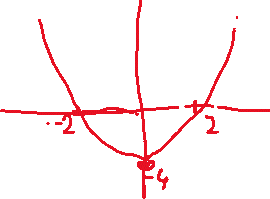 -2
2
-4